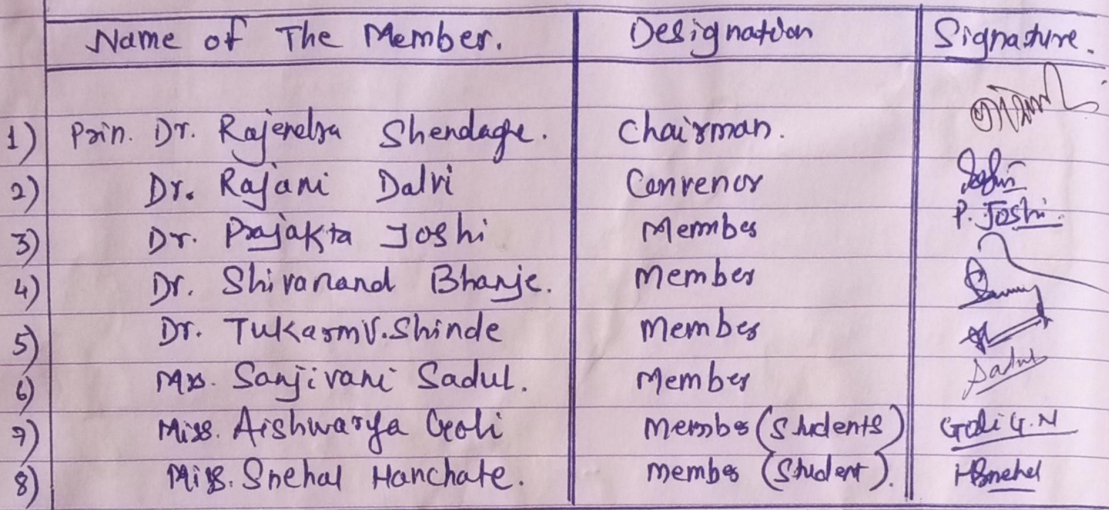 Name of The Member. Designation Signature.
1) Prin. Dr. Rajendra Shendage. Chairman.
2) Dr. Rajani Dalvi Convenor
3) Dr. Prajakta Joshi Member P. Joshi.
4) Dr. Shivanand Bhanje. Member
5) Dr. Tukarm V. Shinde Member
6) Mrs. Sanjivani Sadul. Member Sadul
7) Miss. Aishwarya Goli Member (Students) Goli G. N
8) Miss. Snehal Hanchate. member (Student). HSnehal